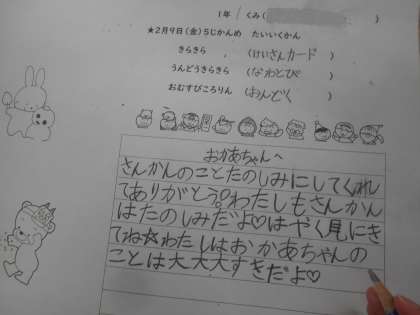 1年 1 くみ( )
★2月9日(金)5じかんめ たいいくかん
きらきら (けいさんカード )
うんどうきらきら (なわとび )
おむすびころりん (おんどく )
おかあちゃんへ
さんかんのことたのしみにしてくれし
てありがとう?わたしもさんかん
はたのしみだよ♡はやく見にき
てね☆わたしはおかあちゃんの
ことは大大大すきだよ♡